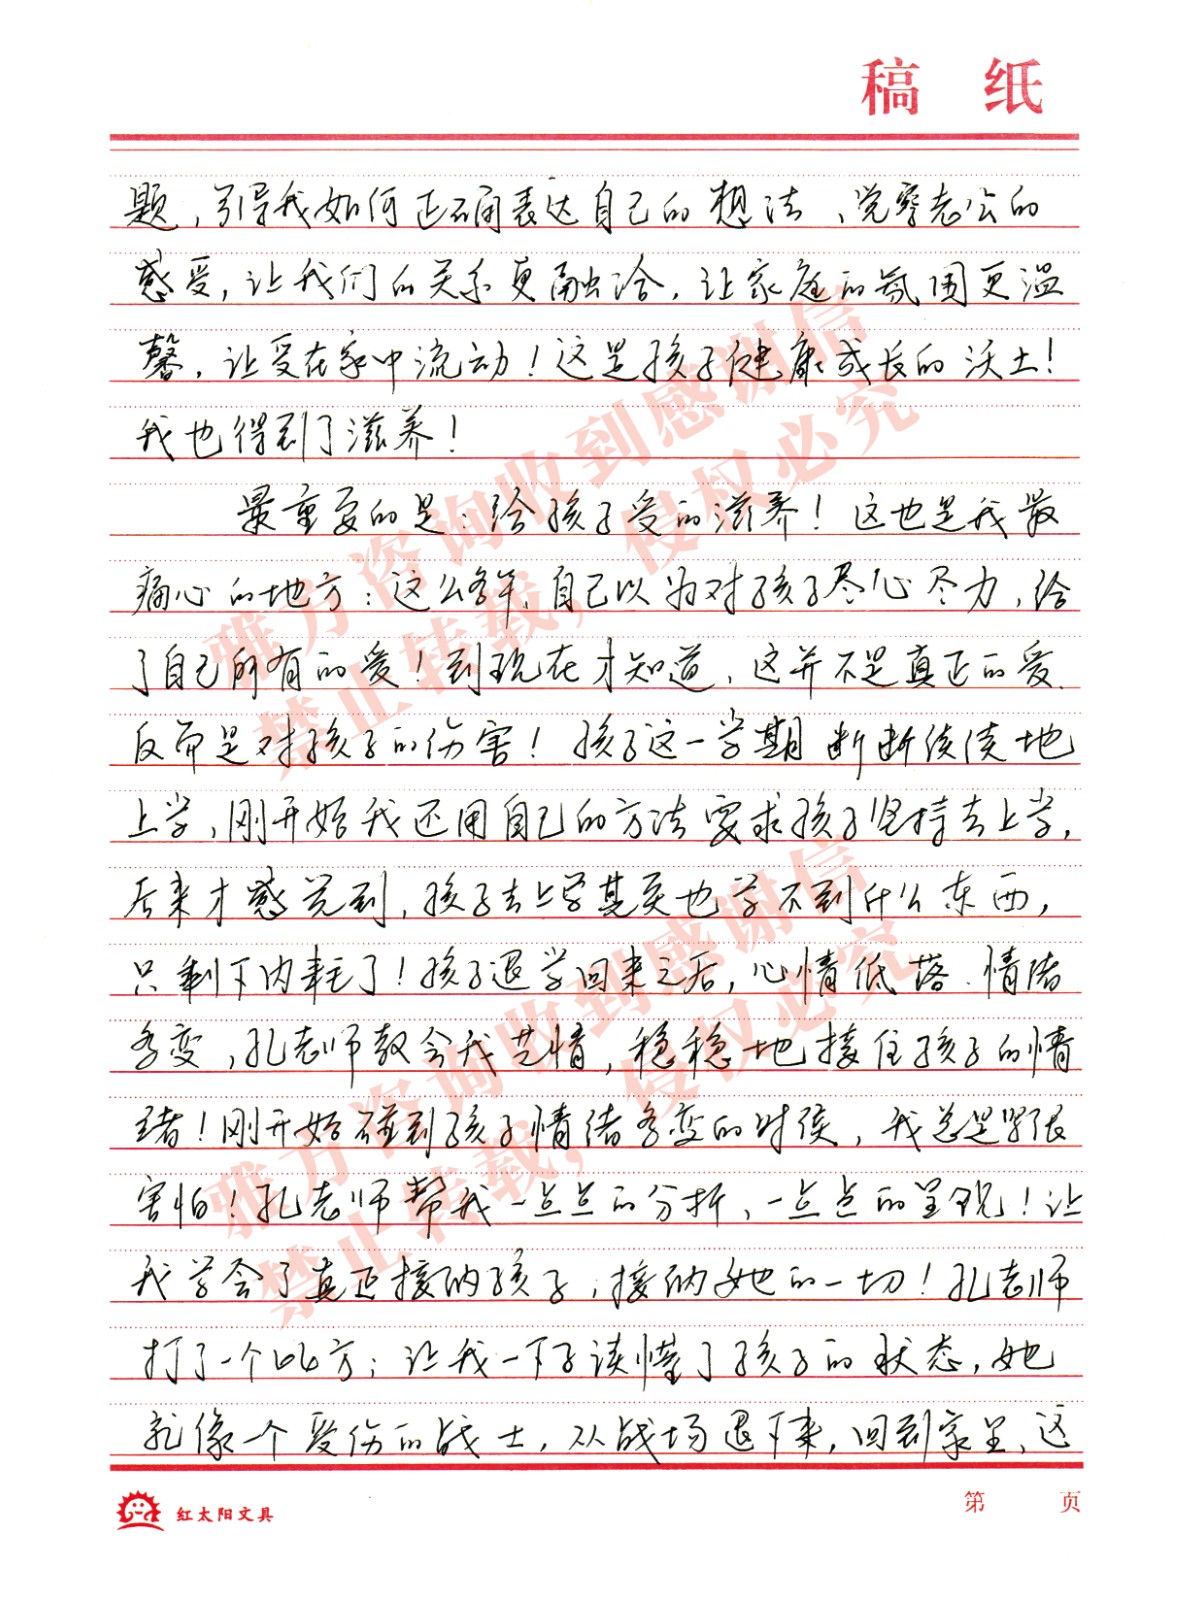 稿 纸
题，引导我如何正确表达自己的想法、觉察老公的
感受，让我们的关系更融洽，让家庭的氛围更温
馨，让爱在家中流动！这是孩子健康成长的沃土！
我也得到了滋养！
最重要的是：给孩子爱的滋养！这也是我最
痛心的地方：这么多年，自己以为对孩子尽心尽力，给
了自己所有的爱！到现在才知道，这并不是真正的爱，
反而是对孩子的伤害！孩子这一学期断断续续地
上学，刚开始我还用自己的方法要求孩子坚持去上学，
后来才感觉到，孩子去上学其实也学不到什么东西，
只剩下内耗了！孩子退学回来之后，心情低落、情绪
多变，孔老师教会我共情，稳稳地接住孩子的情
绪！刚开始碰到孩子情绪多变的时候，我总是很
害怕！孔老师帮我一点点的分析、一点点的呈现！让
我学会了真正接纳孩子，接纳她的一切！孔老师
打了一个比方：让我一下子读懂了孩子的状态，她
就像一个受伤的战士，从战场退下来，回到家里，这
红太阳文具
第 页
雅方咨询收到感谢信
禁止转载，侵权必究
雅方咨询收到感谢信
禁止转载，侵权必究